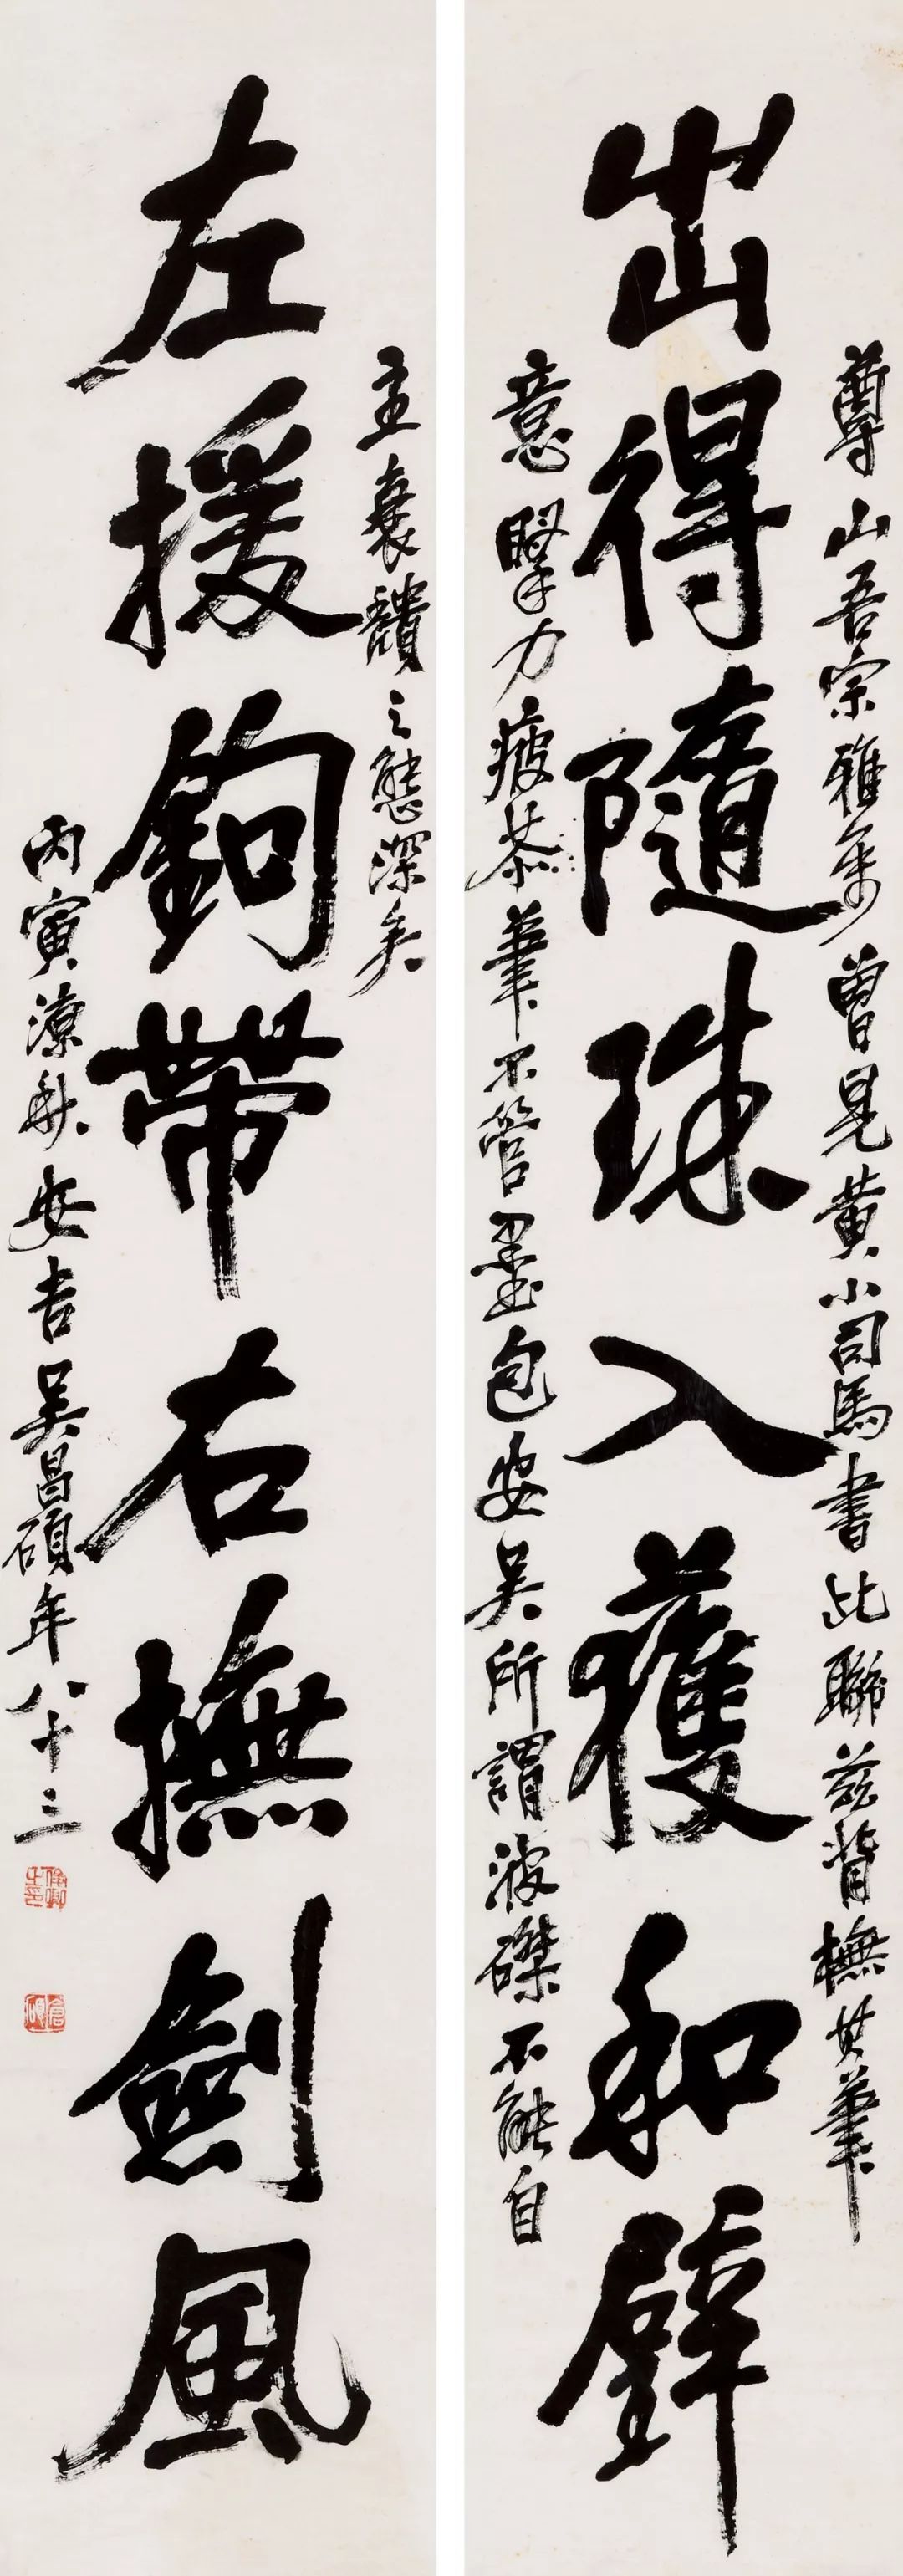 尊山吾宗雅屬曾見黃小司馬書此聯茲背橅其筆
出得隨珠入獲和璧
意掔力疲恭筆不管墨包安吳所謂波磔不能自
主衰憒之態深矣
左援鉤帶右撫劍風
丙寅涼秋安吉吳昌碩年八十三